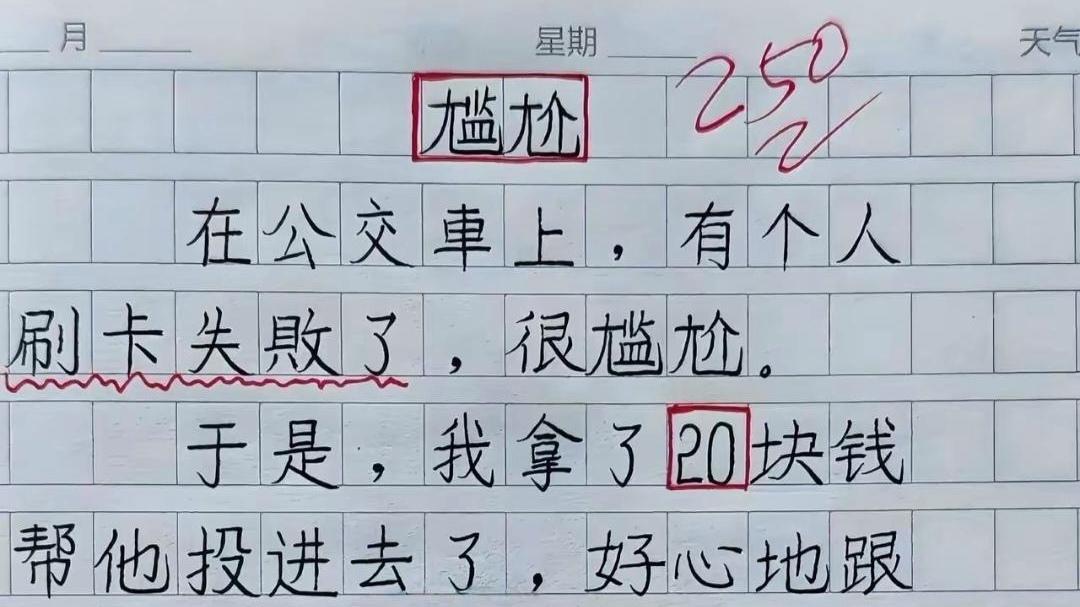 月 星期 天气
尴尬 250
在公交車上，有个人
刷卡失敗了，很尴尬。
于是，我拿了20块钱
帮他投进去了，好心地跟